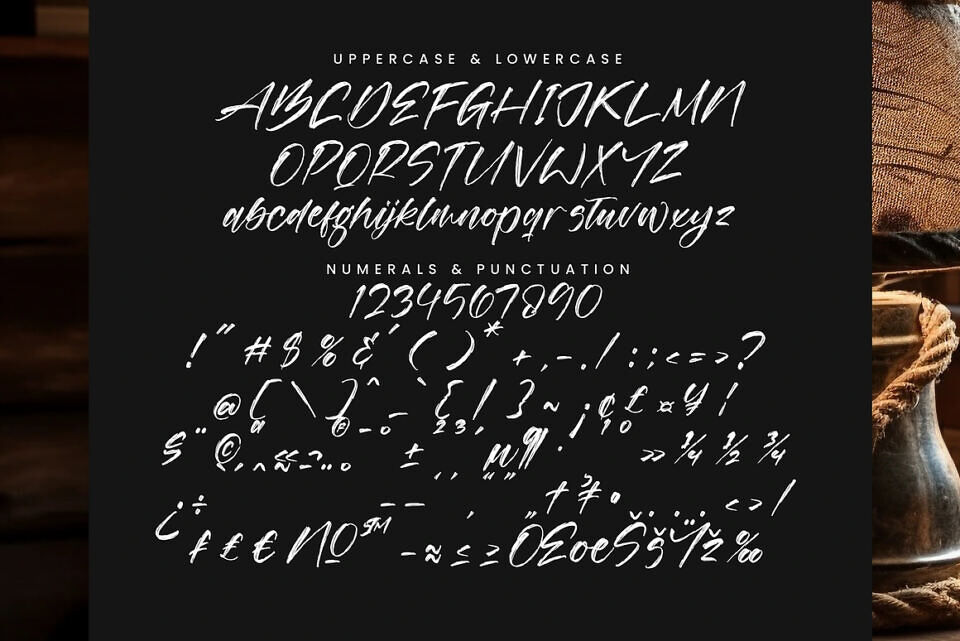 UPPERCASE & LOWERCASE
ABCDEFGHIJKLMN
OPQRSTUVWXYZ
abcdefghijklmnopqrstuvwxyz
NUMERALS & PUNCTUATION
1234567890
!" #$%&' ()* +,-./:;<=>?
@[\]^_`{|}~¡¢£¤¥¦
§¨©ª«¬®¯° ±²³´µ¶·¸¹º»¼½¾
¿÷ – — ‚ „ †‡• … ‹›⁄
ƒ₤€№℠−≈≤≥ŒœŠšŸž‰